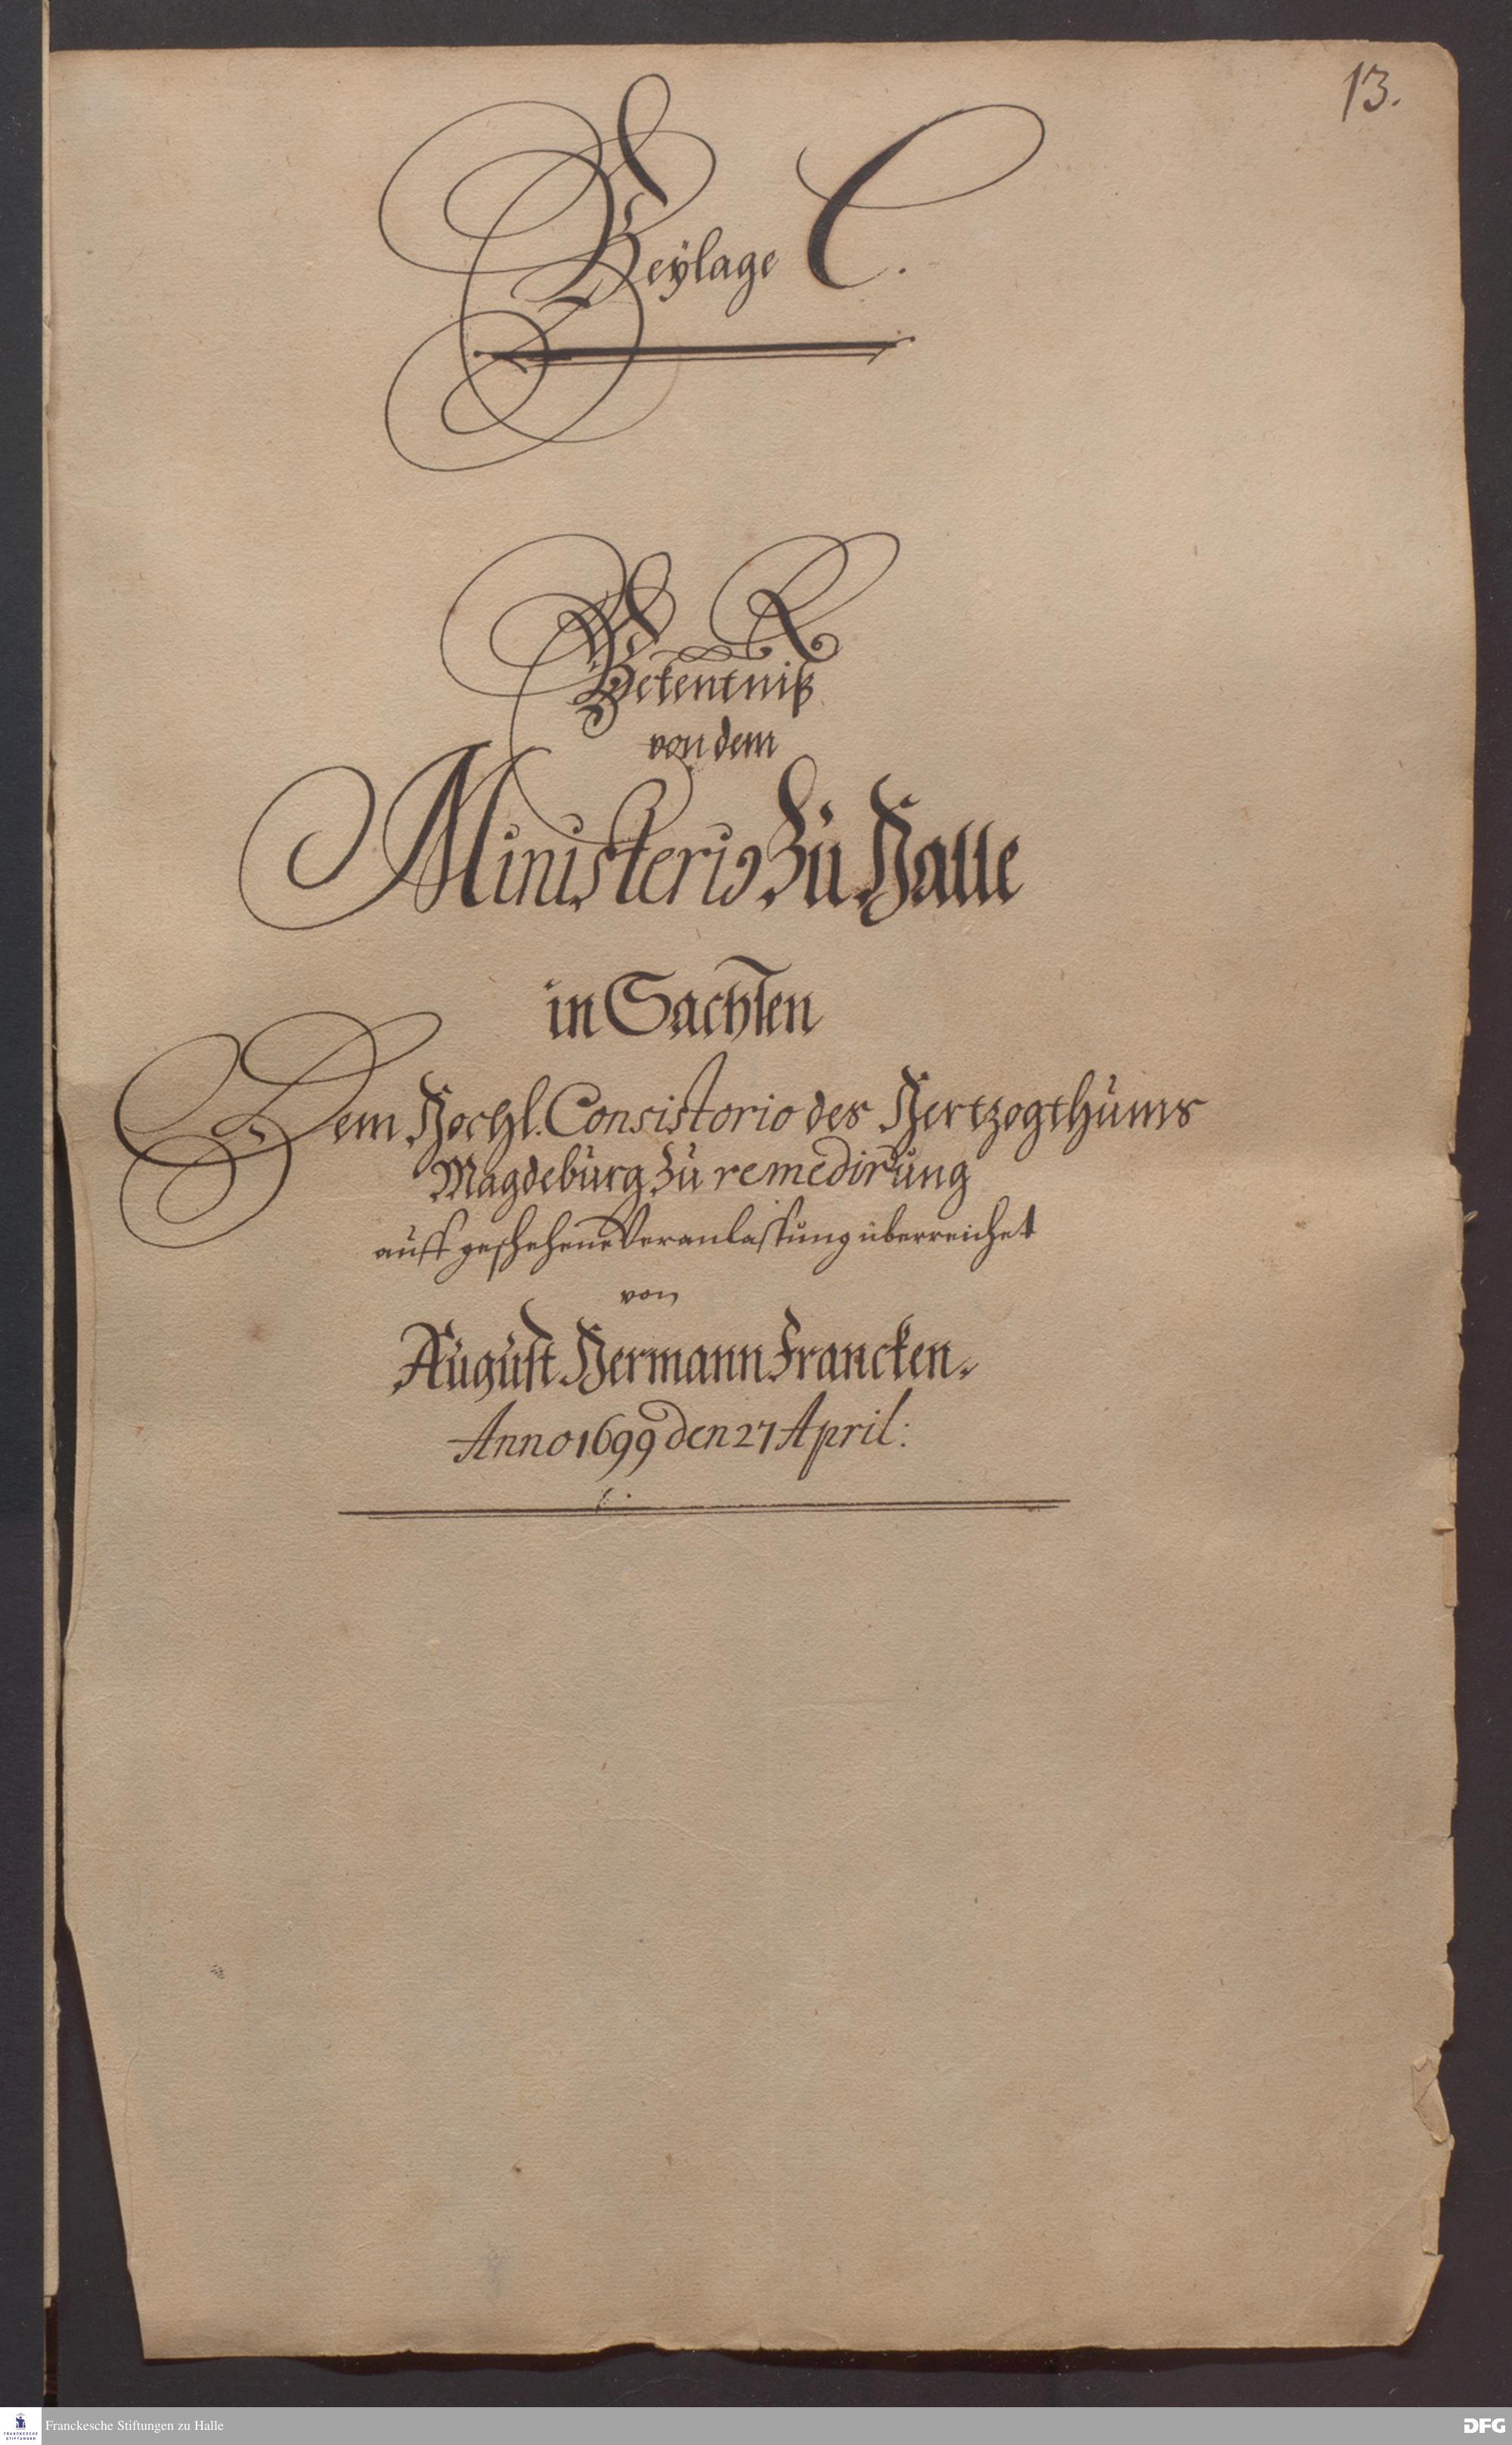 13.
Beylage C.
Bekentniß
von dem
Ministerio Zu Halle
in Sachsen
Dem Hochl. Consistorio des Hertzogthums
Magdeburg Zu remedirung
auff geschehene Veranlassung überreichet
von
August Hermann Francken.
Anno 1699 den 27 April.
FRANCKESCHE
STIFTUNGEN
Franckesche Stiftungen zu Halle
DFG